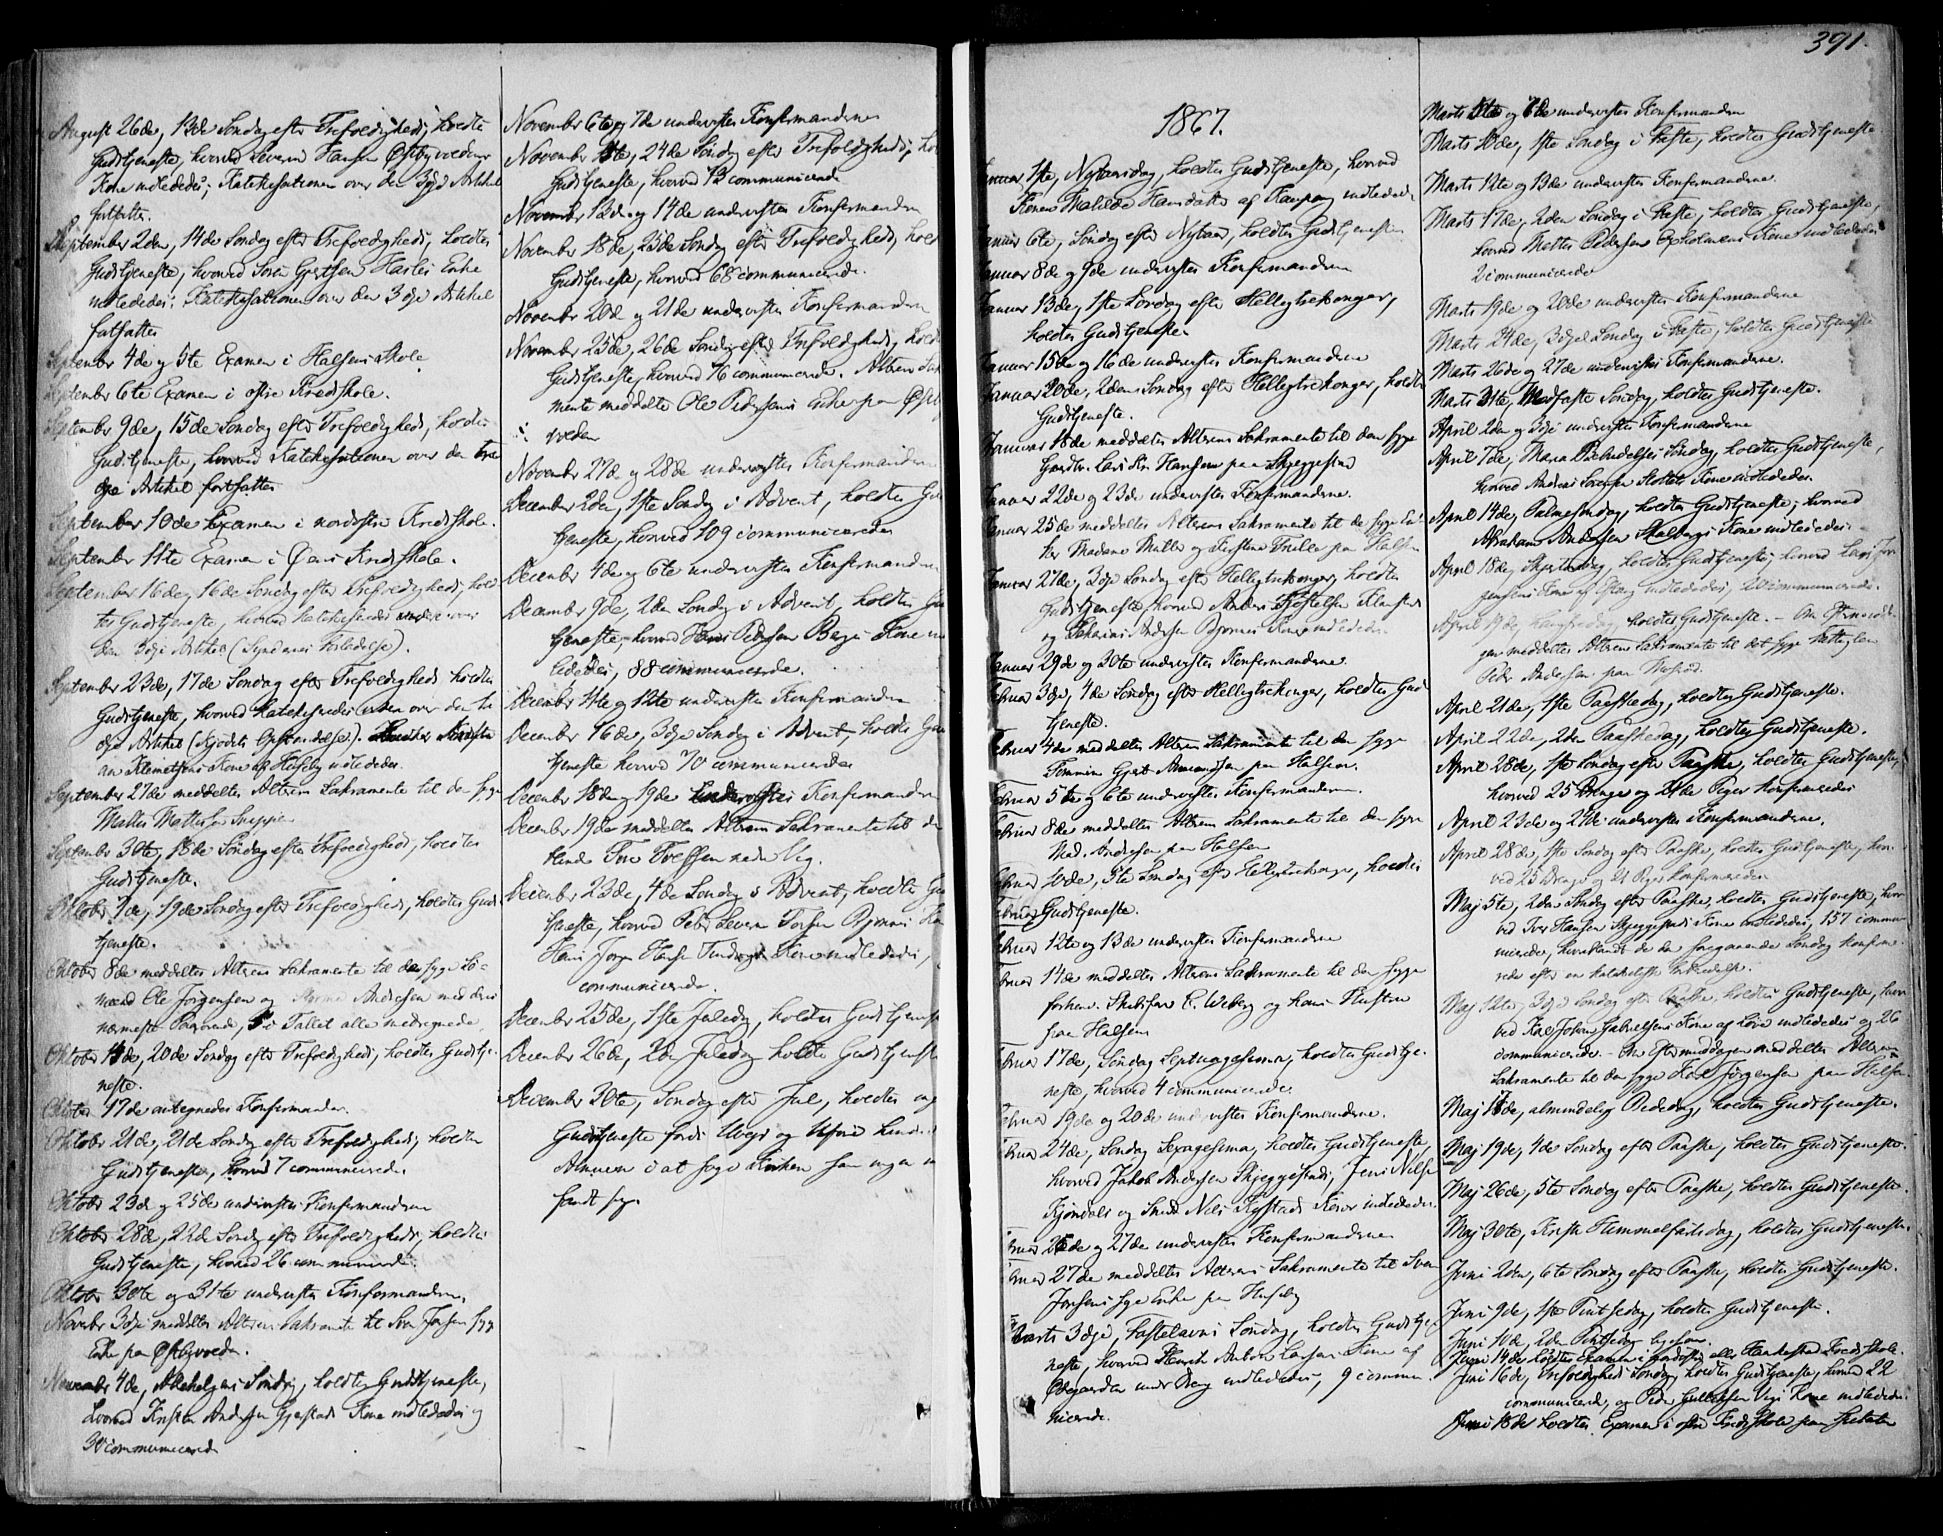 August 26de, 13de Søndag efter Trefoldighed, holdtes
Gudstjeneste, hvorved Severin Hansen Østbyvedens
Kone indlededes; Katekisationen over den 3die Artikel
fortsattes.
September 2den, 14de Søndag efter Trefoldighed, holdtes
Gudstjeneste, hvorved Enke
indlededes; Katekisationen over den 3die Artikel
fortsattes
September 4de og 5te Examen i Halsens Skole
September 6te Examen i østre Kredsskole.
September 9de, 15de Søndag efter Trefoldighed, holdtes
Gudstjeneste, hvorved Katekisationen over den tre-
die Artikel fortsattes
September 10de Examen i nordøstre Kredsskole.
September 11te Examen i Kredsskole.
September 16de, 16de Søndag efter Trefoldighed, hold-
tes Gudstjeneste, hvorved Katekiseredes over
den 3die Artikel (Syndernes Forladelse).
September 23de, 17de Søndag efter Trefoldighed holdtes
Gudstjeneste, hvorved Katekiseredes over den tre-
die Artikel (Kjødets Opstandelse).
Klemetsens Kone af Huseby indlededes.
September 27de meddeltes Alterens Sakramente til den syge
Mathis Mathisen
September 30te, 18de Søndag efter Trefoldighed, holdtes
Gudstjeneste.
Oktober 7de, 19de Søndag efter Trefoldighed, holdtes Guds-
tjeneste.
Oktober 8de meddeltes Alterens Sakramente til den syge
Ole Jørgensen og Andersen med deres
nærmeste Paarørende, 5 i Tallet alle medregnede.
Oktober 14de, 20de Søndag efter Trefoldighed, holdtes Gudstje-
neste.
Oktober 17de antegnedes Konfirmander.
Oktober 21de, 21de Søndag efter Trefoldighed, holdtes
Gudstjeneste, hvorved 7 communicerede.
Oktober 23de og 25de undervistes Konfirmanderne
Oktober 28de, 22de Søndag efter Trefoldighed, holdtes
Gudstjeneste, hvorved 26 communicerede.
Oktober 30te og 31te undervistes Konfirmanderne.
November 3die meddeltes Alterens Sakramente til syge
Enke paa Østbyveden.
November 4de, Allehelgens Søndag, holdtes Gudstjeneste,
hvorved Andersen Gjerstads Kone indlededes og
30 communicerede
November 6te og 7de undervistes Konfirmanderne
November 11te, 24de Søndag efter Trefoldighed, hol
Gudstjeneste, hvorved 13 communicerede.
November 13de og 14de undervistes Konfirmanderne
November 18de, 25de Søndag efter Trefoldighed, hold
Gudstjeneste, hvorved 68 communicerede.
November 20de og 21de undervistes Konfirmanderne
November 25de, 26de Søndag efter Trefoldighed, hold
Gudstjeneste, hvorved 76 communicerede. Alterens Sak
mente meddeltes Ole Pedersens Enke paa Østb
veden
November 27de og 28de undervistes Konfirmanderne
December 2den, 1ste Søndag i Advent, holdtes Gud
tjeneste, hvorved 109 communicerede
December 4de og 6te undervistes Konfirmanderne
December 9de, 2den Søndag i Advent, holdtes Gud
tjeneste, hvorved Hans Pedersen Berge Kone in
lededes; 88 communicerede.
December 11te og 12te undervistes Konfirmanderne
December 16de, 3die Søndag i Advent, holdtes Gud
tjeneste hvorved 70 communicerede
December 18de og 19de undervistes Konfirmanderne
December 19de meddeltes Alterens Sakramente til
December 23de, 4de Søndag i Advent, holdtes Gu
tjeneste, hvorved Peder Severin
Hans Jørgen Hansen Kone indlededes,
communicerede.
December 25de, 1ste Juledag, holdtes Gudstjeneste
December 26de, 2den Juledag holdtes Gudstjeneste
December 30te, Søndag efter Jul, holdtes ing
Gudstjeneste fordi Uveir og Uføre hind
Almuen i at søge Kirken samt ingen
fandt sig.
391.
1867.
Januar 1ste, Nytaarsdag, holdtes Gudstjeneste, hvorved
Konen Mathilde Hansdatter af Kaupang indlededes
Januar 6te, Søndag efter Nytaar, holdtes Gudstjeneste
Januar 8de og 9de undervistes Konfirmanderne
Januar 13de, 1ste Søndag efter Helligtrekonger,
holdtes Gudstjeneste
Januar 15de og 16de undervistes Konfirmanderne
Januar 20de, 2den Søndag efter Helligtrekonger, holdtes
Gudstjeneste.
Januar 18de meddeltes Alterens Sakramente til den syge
Gaardbr. Lars Hansen paa Skjeggestad
Januar 22de og 23de undervistes Konfirmanderne.
Januar 25de meddeltes Alterens Sakramente til de syge
Madame Møller og paa Halsen
Januar 27de, 3die Søndag efter Helligtrekonger, holdtes
Gudstjeneste, hvorved Anders
og Zakarias Andersen Kone indlededes.
Januar 29de og 30te undervistes Konfirmanderne.
Februar 3die, 4de Søndag efter Helligtrekonger, holdtes Gud
tjeneste.
Februar 4de meddeltes Alterens Sakramente til den syge
Tømmerm. Gjert Amundsen paa Halsen.
Februar 5te og 6te undervistes Konfirmanderne.
Februar 8de meddeltes Alterens Sakramente til den syge
Mad. Andersen paa Halsen
Februar 10de, 5te Søndag efter Helligtrekonger, holdtes
Gudstjeneste.
Februar 12te og 13de undervistes Konfirmanderne
Februar 14de meddeltes Alterens Sakramente til den syge
forhenv. Skibsfører C. Weberg og hans Hustru
paa Halsen
Februar 17de, Søndag Septuagesima, holdtes Gudstje-
neste, hvorved 4 communicerede.
Februar 19de og 20de undervistes Konfirmanderne.
Februar 24de, Søndag Sexagesima, holdtes Gudstjeneste,
hvorved Jakob Andersen Skjeggestad, Jens Nilsen
og Nils Koner indlededes.
Februar 26de og 27de undervistes Konfirmanderne
Februar 27de meddeltes Alterens Sakramente til Sven
Jensens syge Enke paa Huseby
Marts 3die, Fastelavns Søndag, holdtes Gudstje
neste, hvorved Henrik Anton Larsens Kone af
Ødegaarden under Berg indlededes, 9 commu-
nicerede.
Marts 5te og 6te undervistes Konfirmanderne
Marts 10de, 1ste Søndag i Faste, holdtes Gudstjeneste
Marts 12te og 13de undervistes Konfirmanderne.
Marts 17de, 2den Søndag i Faste, holdtes Gudstjeneste,
hvorved Mathis Pedersen Kone indlededes
2 communicerede
Marts 19de og 20de undervistes Konfirmanderne
Marts 24de, 3die Søndag i Faste, holdtes Gudstjeneste
Marts 26de og 27de undervistes Konfirmanderne.
Marts 31te, Midfaste Søndag, holdtes Gudstjeneste.
April 2den og 3die undervistes Konfirmanderne
April 7de, Maria Bebudelses Søndag, holdtes Gudstjeneste,
hvorved Anders Sørensen Kone indlededes.
April 14de, Palmesøndag, holdtes Gudstjeneste; hvorved
Abraham Andersen Skalbergs Kone indlededes.
April 18de, Skjærtorsdag, holdtes Gudstjeneste; hvorved Lars Jør
gensens Kone af indlededes, 20 communicerede.
April 19de Langfredag holdtes Gudstjeneste. – Om Eftermidda-
gen meddeltes Alterens Sakramente til det syge
Peder Andersen paa
April 21de, 1ste Paaskedag, holdtes Gudstjeneste.
April 22de, 2den Paaskedag, holdtes Gudstjeneste.
April 28de, 1ste Søndag efter Paaske, holdtes Gudstjeneste,
hvorved 25 Drenge og 21de Piger konfirmeredes
April 23de og 24de undervistes Konfirmanderne.
April 28de, 1ste Søndag efter Paaske, holdtes Gudstjeneste, hvor-
ved 25 Drenge og 21 Piger konfirmeredes
Maj 5te, 2den Søndag efter Paaske, holdtes Gudstjeneste, hvor
ved Iver Hansen Skjeggestads Kone indlededes, 157 commu-
nicerede, hvoriblandt de den foregaaende Søndag konfirme-
rede efter en kateketisk Indledelse.
Maj 12te, 3die Søndag efter Paaske, holdtes Gudstjeneste, hvor
ved Karl Johan Gabrielsens Kone af indlededes og 26
communicerede. – Om Eftermiddagen meddeltes Alterens
Sakramente til den syge Jørgensen paa Halsen.
Maj 17de, almindelig Bededag, holdtes Gudstjeneste.
Maj 19de, 4de Søndag efter Paaske, holdtes Gudstjeneste.
Maj 26de, 5te Søndag efter Paaske, holdtes Gudstjeneste.
Maj 30te, Kristi Himmelfartsdag, holdtes Gudstjeneste.
Juni 2den, 6te Søndag efter Paaske, holdtes Gudstjeneste.
Juni 9de, 1ste Pintsedag, holdtes Gudstjeneste.
Juni 10de, 2den Pintsedag ligesaa.
Juni 14de holdtes Examen i nordøstre eller Kredsskole.
Juni 16de, Trefoldigheds Søndag, holdtes Gudstjeneste, hvorved 22
communicerede, og Peder Gulliksen Kone indlededes.
Juni 18de holdtes Examen i østre Kredsskole paa